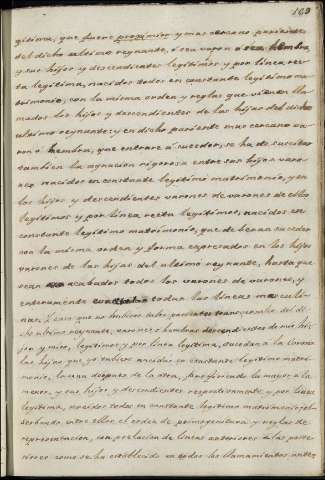 169
gitima, que fuere proximior y mas cercano pariente
del dicho ultimo reynante, ó sea varon ó sea hembra,
y sus hijos y descendientes legitimos y por linea rec-
ta legitima, nacidos todos en constante legitimo ma-
trimonio, con la misma orden y reglas que vienen lla-
mados los hijos y descendientes de las hijas del dicho
ultimo reynante; y en dicho pariente mas cercano va-
ron ó hembra, que entrare á suceder, se ha de suscitar
tambien la agnacion rigorosa entre sus hijos varo-
nes nacidos en constante legitimo matrimonio, y en
los hijos y descendientes varones de varones de ellos
legitimos y por linea recta legitimos, nacidos en
constante legitimo matrimonio, que deberan suceder
con la misma orden y forma expresados en los hijos
varones de las hijas del ultimo reynante, hasta que
sean acabados todos los varones de varones, y
enteramente evacuadas todas las lineas masculi-
nas. Y caso que no hubiere tales parientes transversales del di-
cho ultimo reynante, varones ó hembras descendientes de mis hi-
jos y mios, legitimos y por linea legitima, sucedan á la Corona
las hijas que yo tubiere nacidas en constante legitimo matri-
monio, la una despues de la otra, prefiriendo la mayor á la
menor, y sus hijos y descendientes respectivamente, y por linea
legitima, nacidos todos en constante legitimo matrimonio; ob-
servando entre ellos el orden de primogenitura y reglas de
representacion, con prelacion de lineas anteriores á las poste-
riores como se ha establecido en todos los llamamientos antece-